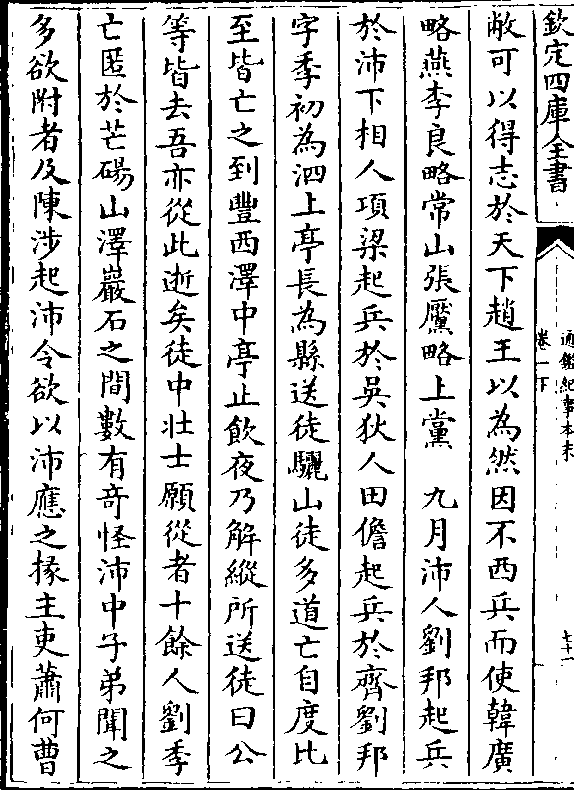 欽定四庫全書
通鑑紀事本末
卷一下
敝可以得志於天下趙王以為然因不西兵而使韓廣
略燕李良略常山張黶略上黨　九月沛人劉邦起兵
於沛下相人項梁起兵於吳狄人田儋起兵於齊劉邦
字季初為泗上亭長為縣送徒驪山徒多道亡自度比
至皆亡之到豐西澤中亭止飲夜乃解縱所送徒曰公
等皆去吾亦從此逝矣徒中壯士願從者十餘人劉季
亡匿於芒碭山澤巖石之間數有奇怪沛中子弟聞之
多欲附者及陳涉起沛令欲以沛應之掾主吏蕭何曹